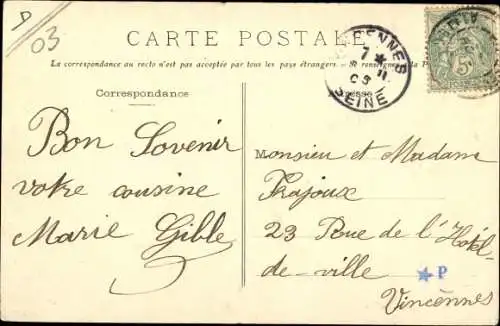 D
03
CARTE POSTALE
La correspondance au recto n'est pas acceptée par tous les pays étrangers. — Se renseigner à la P
Correspondance
VINCENNES
7 *
11
03
SEINE
5
Bon Sovenir
votre cousine
Marie Gible
Monsieur et Madame
Prajoux
23 Rue de l'Hotel-
de-ville
P
Vincennes